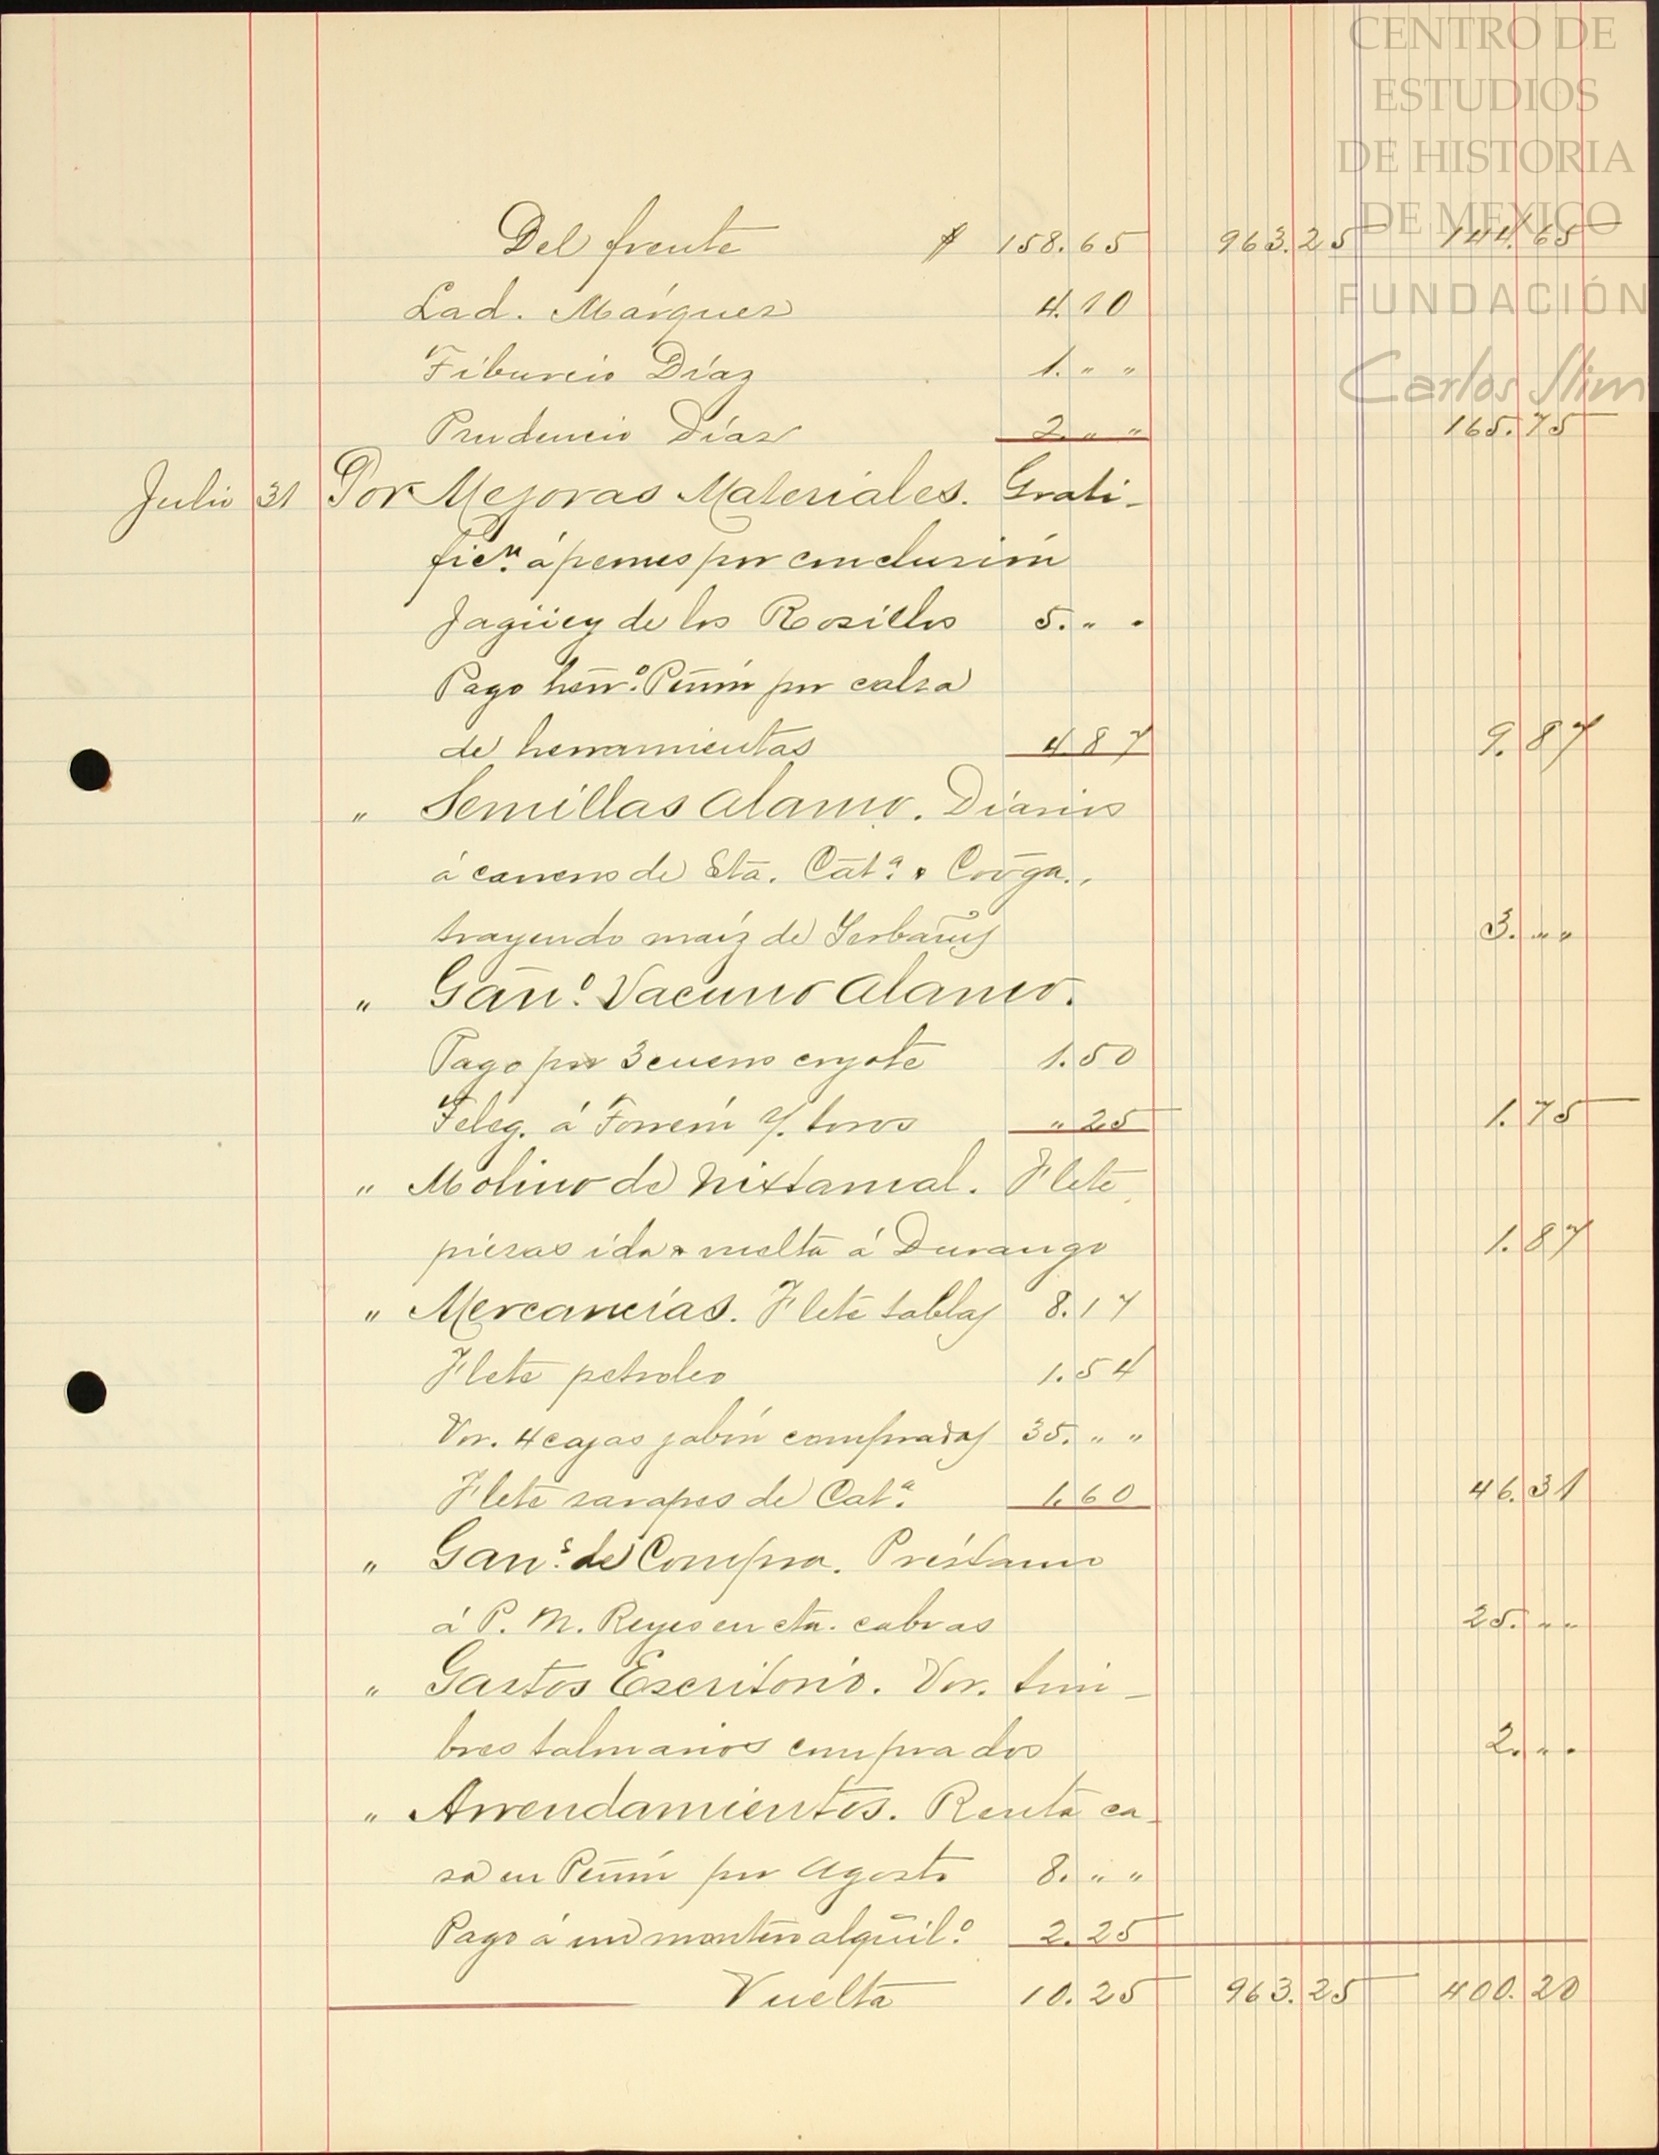 CENTRO DE
ESTUDIOS
DE HISTORIA
DE MEXICO
FUNDACIÓN
Carlos Slim
Del frente $ 158.65 963.25 144.65
Lad. Márquez 4.10
Tiburcio Díaz 1. " "
Prudencio Díaz 2. " " 165.75
Julio 31 Por Mejoras Materiales. Grati-
ficn. á peones por conclusión
Jagüey de los Rosillos 5. " "
Pago herro. Peñón por calza
de herramientas 4.87 9.87
" Semillas Alamo. Diarios
á carreros de Sta. Cata. & Covga.,
trayendo maíz de Yerbañis 3. " "
" Gano. Vacuno Alamo.
Pago por 3 cueros coyote 1.50
Teleg. á Torreón s/. toros " 25 1.75
" Molino de Nixtamal. Flete
piezas ida & vuelta á Durango 1.87
" Mercancías. Flete tablas 8.17
Flete petroleo 1.54
Vor. 4 cajas jabón compradas 35. " "
Flete sarapes de Cata. 1.60 46.31
" Gans. de Compra. Préstamo
á P. M. Reyes en cta. cabras 25. " "
" Gastos Escritorio. Vor. tim-
bres talonarios comprados 2. " "
" Arrendamientos. Renta ca-
sa en Peñón por Agosto 8. " "
Pago á un montero alquil. 2.25
Vuelta 10.25 963.25 400.20